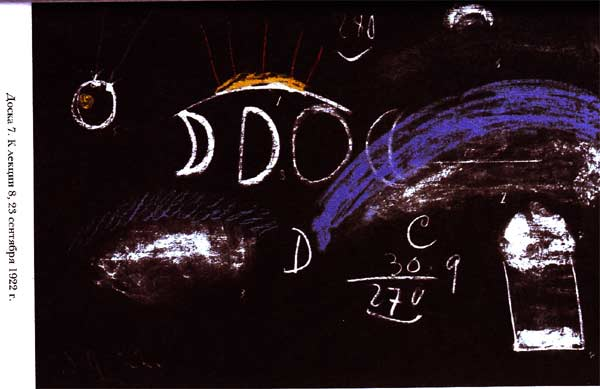 Доска 7. К лекции 8, 23 сентября 1922 г.
270
D
C
30 9
270